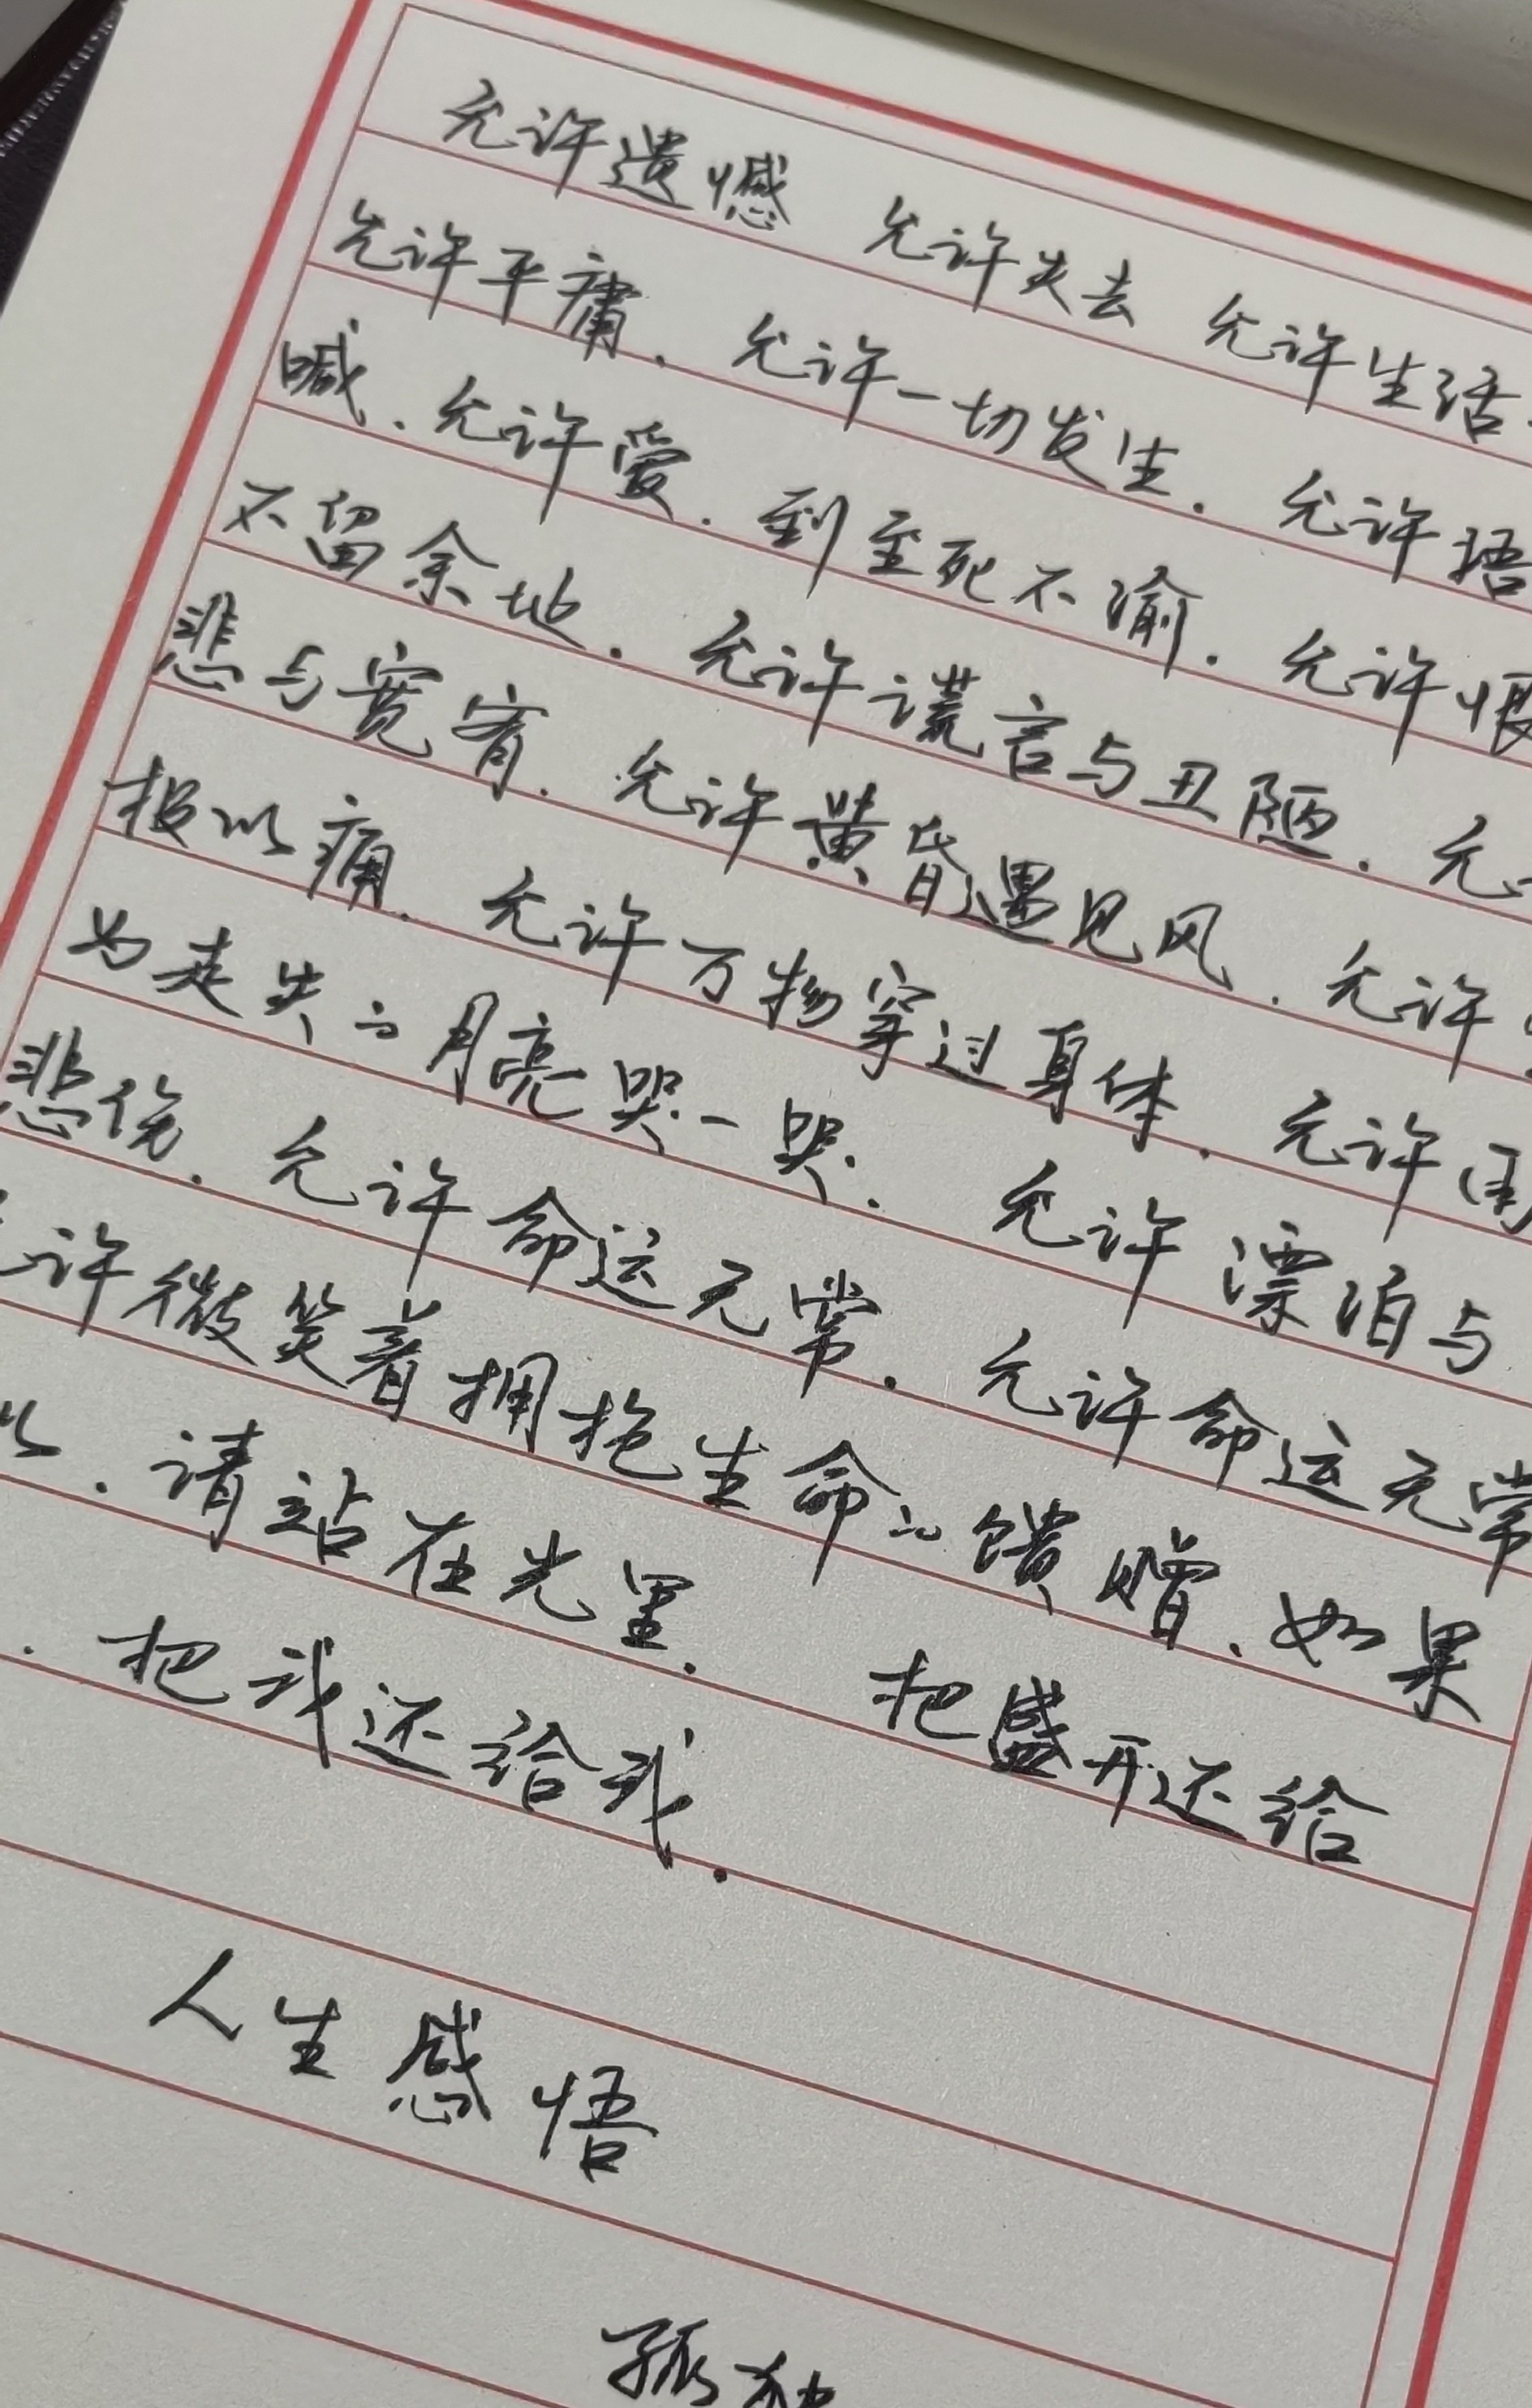 允许遗憾 允许失去 允许生活
允许平庸. 允许一切发生. 允许捂
喊. 允许爱. 到至死不渝. 允许恨
不留余地. 允许谎言与丑陋. 允
悲与宽宥. 允许黄昏遇见风. 允许
报以痛. 允许万物穿过身体. 允许因
为走失的月亮哭一哭. 允许漂泊与
悲伤. 允许命运无常. 允许命运无常
许微笑着拥抱生命的馈赠. 如果
以. 请站在光里. 把盛开还给
. 把我还给我.
人生感悟
孤独